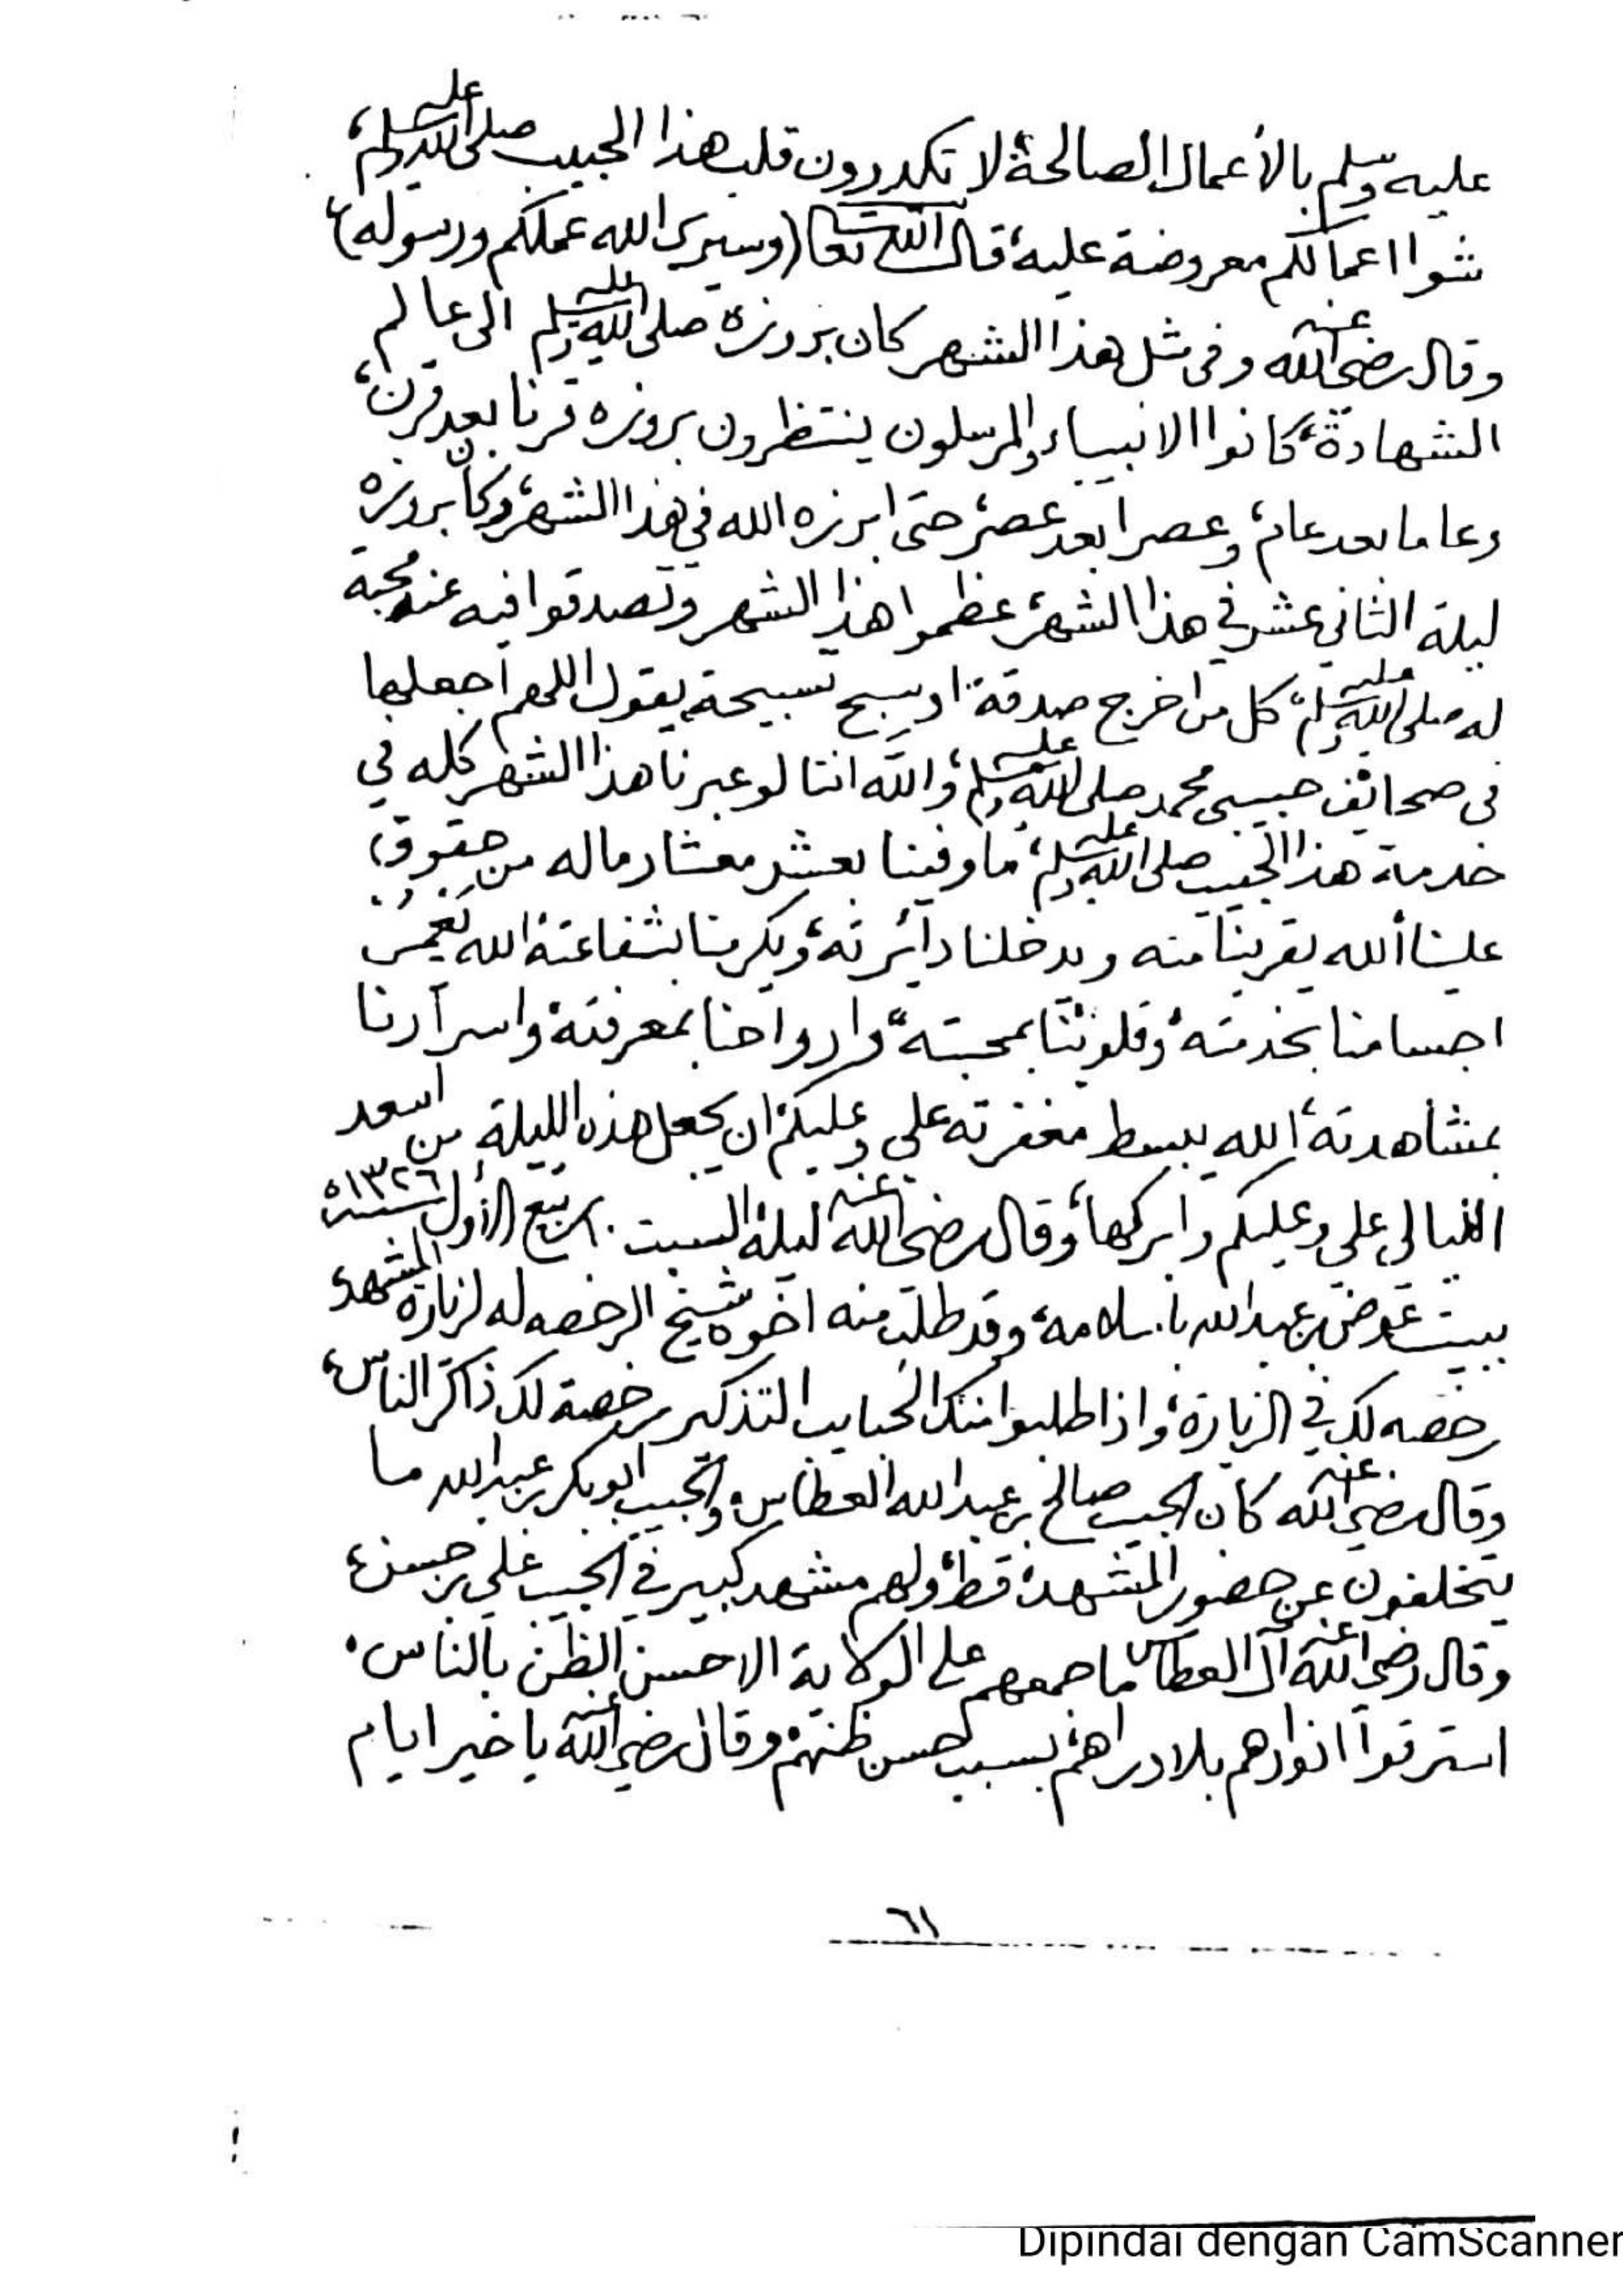 عليه وسلم بالأعمال الصالحة، لا تكدرون قلب هذا الحبيب صلى الله عليه وسلم،
شوا اعمالكم معروضة عليه، قال الله تعا (وسيرى الله عملكم ورسوله)،
وقال رضي الله عنه وفى مثل هذا الشهر كان بروزه صلى الله عليه وسلم الى عالم
الشهادة، كانوا الانبياء والمرسلون ينتظرون بروزه قرنا بعد قرن،
وعاما بعد عام، وعصرا بعد عصر، حتى ابرزه الله في هذا الشهر، وكان بروزه
ليلة الثاني عشر في هذا الشهر، عظموا هذا الشهر وتصدقوا فيه محبة
له صلى الله عليه وسلم، كل من اخرج صدقة او يسبح تسبيحة، يقول اللهم اجعلها
فى صحائف حبيبى محمد صلى الله عليه وسلم، والله اننا لو عبرنا هذا الشهر كله في
خدمة هذا الحبيب صلى الله عليه وسلم، ما وفينا بعشر معشار ماله من حقوق،
علينا، الله يقربنا منه ويدخلنا دائرته، ويكرمنا بشفاعته، الله يعمر
اجسامنا بخدمته، وقلوبنا بمحبته، وارواحنا بمعرفته، واسرارنا
بمشاهدته، الله يبسط مغفرته علي وعليكم، ان يجعل هذه الليلة من اسعد
الليالى علي وعليكم وابركها، وقال رضي الله عنه ليلة السبت ربيع الأول سنة ١٣٢٦ه
ببيت عوض بن عبدالله با سلامه، وقد طلب منه اخوه شيخ الرخصه له لزيارة المشهد،
رخصه لك في الزيارة، واذا طلبوا منك الحبايب التذكير رخصة لك ذاكر الناس،
وقال رضي الله عنه كان الحبيب صالح بن عبدالله العطاس، والحبيب ابوبكر بن عبدالله ما
يتخلفون عن حضور المشهد، قط، ولهم مشهد كبير في الحبيب علي بن حسن،
وقال رضي الله عنه آل العطاس ما جمعهم على الولاية الا حسن الظن بالناس.
استرقوا انوارهم بلا دراهم، بسبب حسن ظنهم، وقال رضي الله عنه يا خير ايام
٦١
Dipindai dengan CamScanner